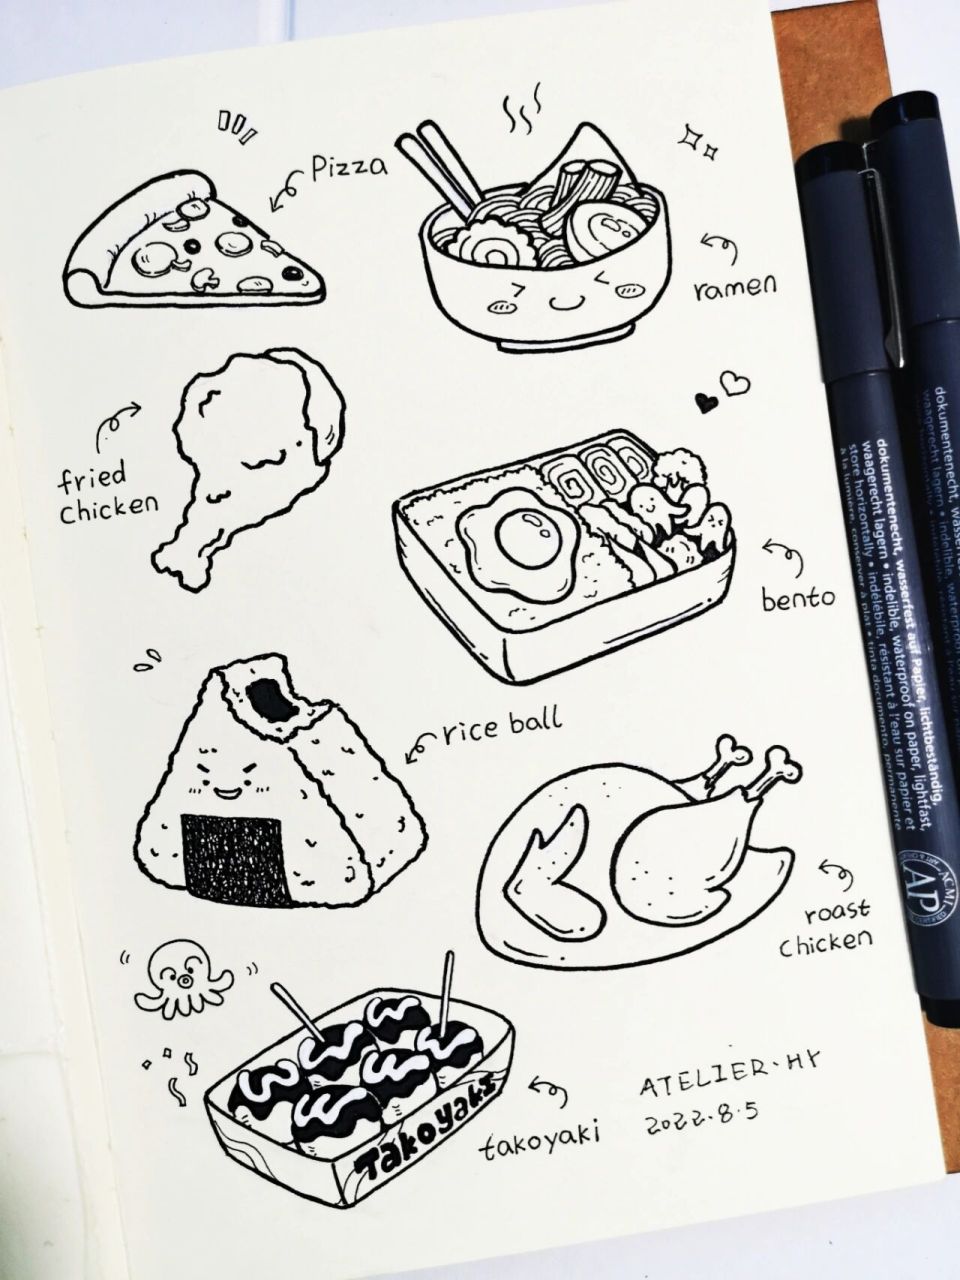 Pizza
ramen
fried
chicken
bento
rice ball
roast
chicken
Takoyaki
takoyaki
ATELIER·HY
2022.8.5
dokumentenecht, wasserfest auf Papier, lichtbeständig,
waagerecht lagern • indelible, waterproof on paper, lightfast,
store horizontally • indélébile, résistant à l'eau sur papier et
à la lumière, conserver à plat • tinta documento, permanente
ACMI
AP
dokumentenecht,
waagerecht lagern